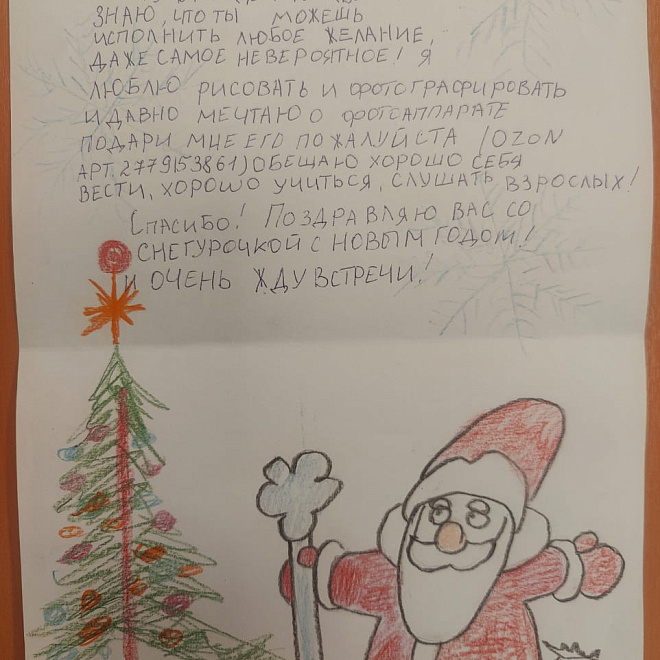 ЗНАЮ, ЧТО ТЫ МОЖЕШЬ
ИСПОЛНИТЬ ЛЮБОЕ ЖЕЛАНИЕ,
ДАЖЕ САМОЕ НЕВЕРОЯТНОЕ! Я
ЛЮБЛЮ РИСОВАТЬ И ФОТОГРАФИРОВАТЬ
И ДАВНО МЕЧТАЮ О ФОТОАППАРАТЕ
ПОДАРИ МНЕ ЕГО ПОЖАЛУЙСТА (OZON
АРТ. 2779153861) ОБЕЩАЮ ХОРОШО СЕБЯ
ВЕСТИ, ХОРОШО УЧИТЬСЯ, СЛУШАТЬ ВЗРОСЛЫХ!
СПАСИБО! ПОЗДРАВЛЯЮ ВАС СО
СНЕГУРОЧКОЙ С НОВЫМ ГОДОМ!
И ОЧЕНЬ ЖДУ ВСТРЕЧИ!